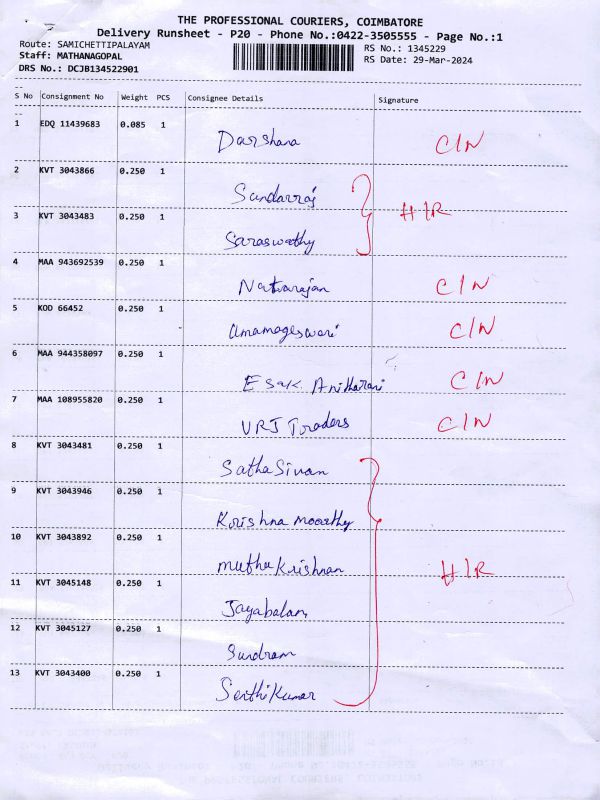 THE PROFESSIONAL COURIERS, COIMBATORE
Delivery Runsheet - P20 - Phone No.:0422-3505555 - Page No.:1
Route: SAMICHETTIPALAYAM RS No.: 1345229
Staff: MATHANAGOPAL RS Date: 29-Mar-2024
DRS No.: DCJB134522901
S No Consignment No Weight PCS Consignee Details Signature
1 EDQ 11439683 0.085 1 Darshana C/N
2 KVT 3043866 0.250 1 Sundarraj
H/R
3 KVT 3043483 0.250 1 Saraswathy
4 MAA 943692539 0.250 1 Natarajan C/N
5 KOD 66452 0.250 1 C/N
6 MAA 944358097 0.250 1 Esak. C/N
7 MAA 108955820 0.250 1 VRJ Traders C/N
8 KVT 3043481 0.250 1 SathaSivan
9 KVT 3043946 0.250 1 Krishna moorthy
10 KVT 3043892 0.250 1 muthukrishnan
H/R
11 KVT 3045148 0.250 1 Jayabalan
12 KVT 3045127 0.250 1 Sundram
13 KVT 3043400 0.250 1 SenthiKumar